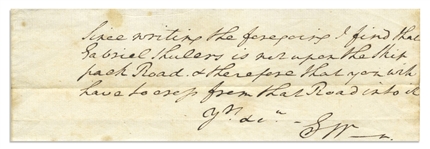 Since writing the foregoing I find that
Gabriel Shulers is not upon the Skip
pack Road. & therefore that you will
have to cross from that Road into it
Yrs &c. -